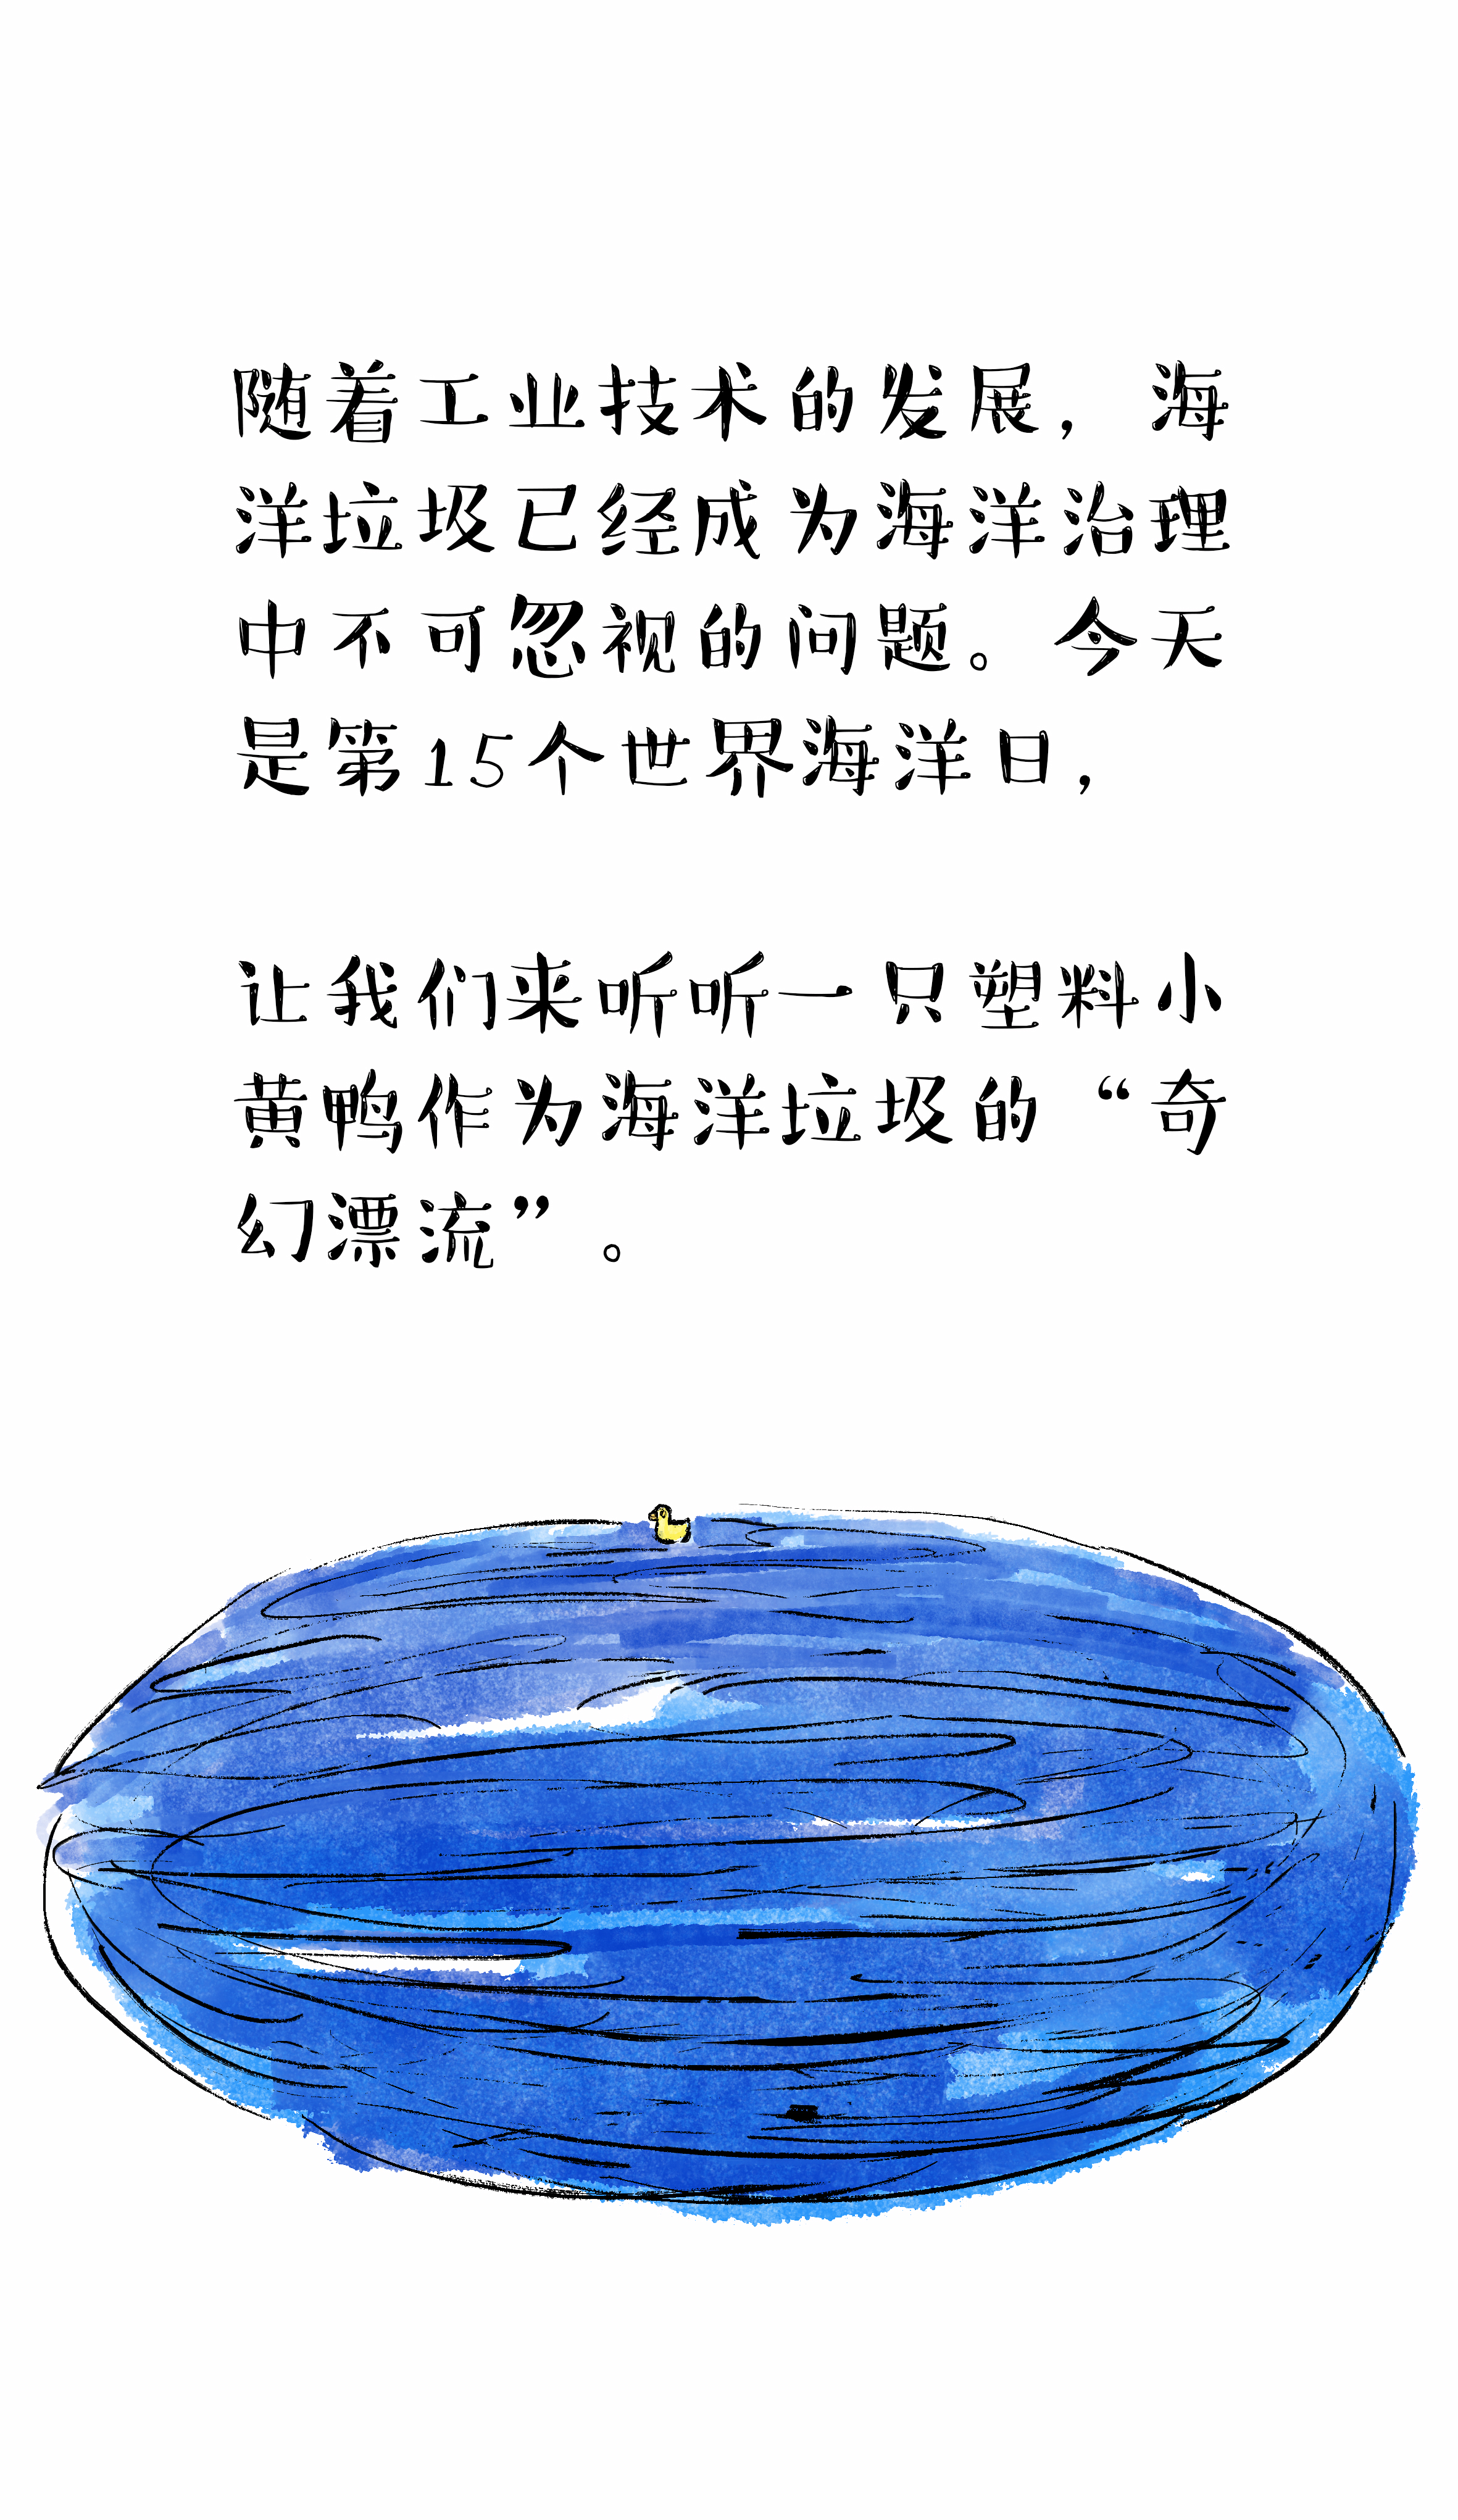 随着工业技术的发展，海
洋垃圾已经成为海洋治理
中不可忽视的问题。今天
是第15个世界海洋日，
让我们来听听一只塑料小
黄鸭作为海洋垃圾的“奇
幻漂流”。